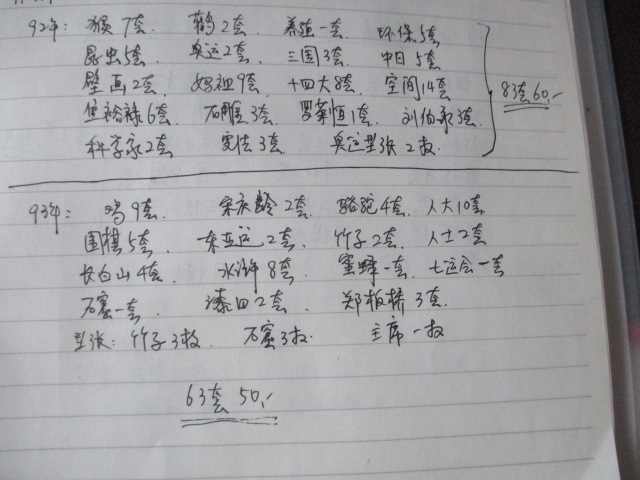 92年: 猴7套. 鹳2套 养殖一套 环保5套
昆虫5套 奥运2套, 三国3套 中日5套
壁画2套 妈祖9套, 十四大8套, 空间14套
焦裕禄6套 石雕3套 罗荣恒1套 刘伯承3套.
科学家2套 宪法3套 奥运型张2枚
83套60,-
93年: 鸡9套, 宋庆龄2套 骆驼4套, 人大10套
围棋5套, 东亚运2套, 竹子2套, 人士2套
长白山4套, 水浒8套 蜜蜂一套, 七运会一套
石窟一套, 漆四2套, 郑板桥3套.
型张: 竹子3枚, 石窟3枚. 主席一枚
63套 50,-